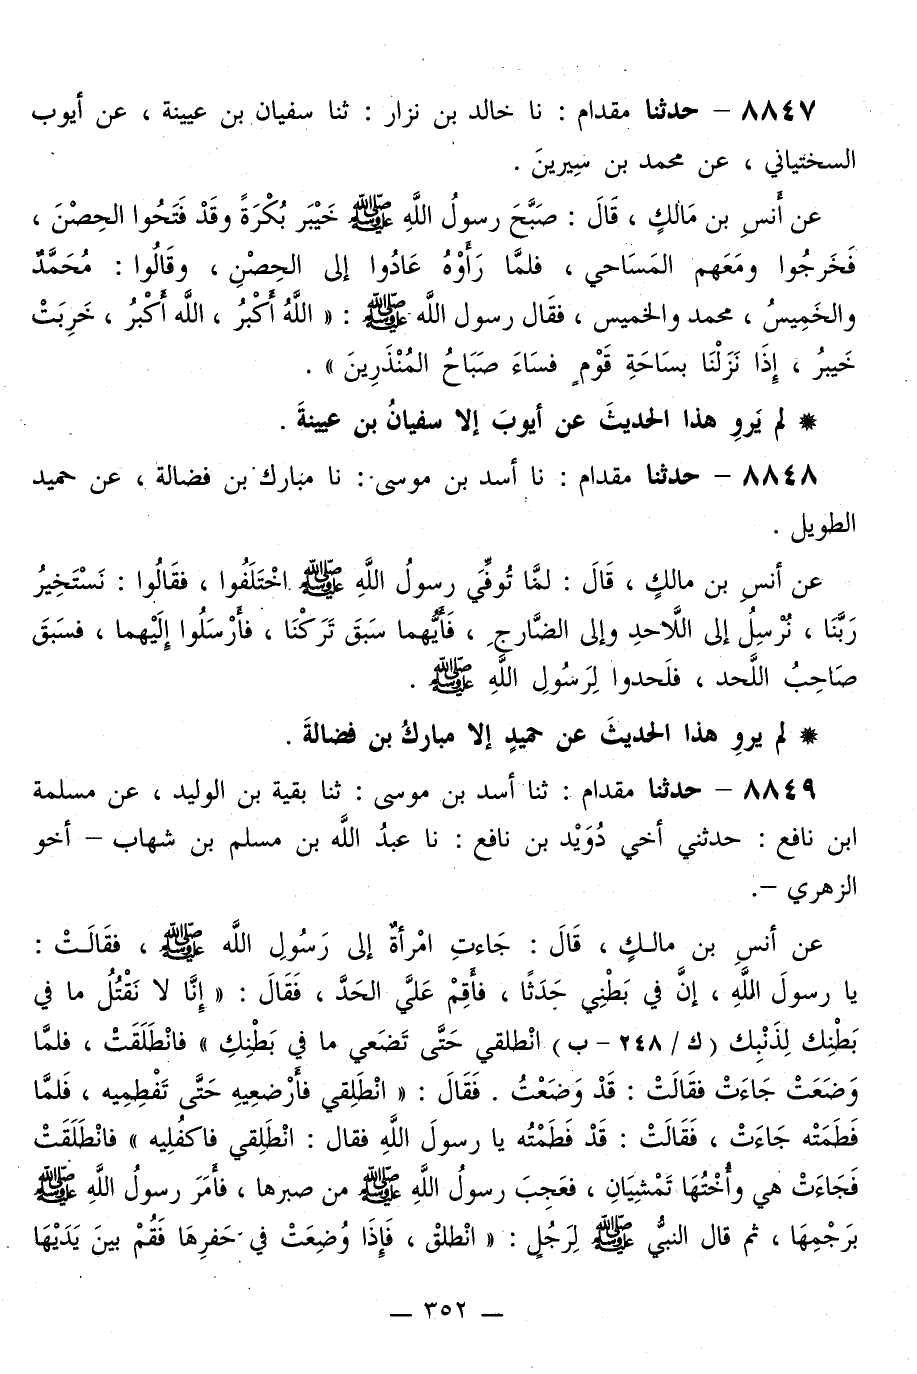 ٨٨٤٧ – حدثنا مقدام : نا خالد بن نزار : ثنا سفيان بن عيينة ، عن أيوب
السختياني ، عن محمد بن سِيرينَ .
عن أَنسِ بن مَالكٍ ، قَالَ : صَبَّحَ رسولُ اللَّهِ ﷺ خَيْبَر بُكْرَةً وقَدْ فَتَحُوا الحِصْنَ ،
فَخَرجُوا ومَعَهم المَسَاحي ، فلمَّا رَأَوْهُ عَادُوا إلى الحِصْنِ ، وقَالُوا : مُحَمَّدٌ
والخَمِيسُ ، محمد والخميس ، فقَال رسول اللَّه ﷺ : « اللَّهُ أَكْبَرُ ، اللَّه أَكْبَرُ ، خَرِبَتْ
خَيبرُ ، إِذَا نَزَلْنَا بسَاحَةِ قَوْمٍ فسَاءَ صَبَاحُ المُنْذَرِينَ » .
* لم يَروِ هذا الحديثَ عن أيوبَ إلا سفيانُ بن عيينةَ .
٨٨٤٨ – حدثنا مقدام : نا أسد بن موسى : نا مبارك بن فضالة ، عن حميد
الطويل .
عن أنسِ بن مالكٍ ، قَالَ : لمَّا تُوفِّيَ رسولُ اللَّهِ ﷺ اخْتَلَفُوا ، فقَالُوا : نَسْتَخِيرُ
رَبَّنَا ، نُرْسِلُ إلى اللَّاحدِ وإلى الضَّارحِ ، فَأَيُّهما سَبقَ تَرَكْنَا ، فأَرْسَلُوا إِلَيْهما ، فسَبقَ
صَاحِبُ اللَّحد ، فلَحدوا لِرَسُولِ اللَّهِ ﷺ .
* لم يروِ هذا الحديثَ عن حميدٍ إلا مباركُ بن فضالةَ .
٨٨٤٩ – حدثنا مقدام : ثنا أسد بن موسى : ثنا بقية بن الوليد ، عن مسلمة
ابن نافع : حدثني أخي دُوَيْد بن نافع : نا عبدُ اللَّه بن مسلم بن شهاب – أخو
الزهري –.
عن أنسِ بن مالـكٍ ، قَالَ : جَاءتِ امْرأةٌ إلى رَسُولِ اللَّه ﷺ ، فقَالَـتْ :
يا رسولَ اللَّهِ ، إنَّ في بَطْنِي حَدَثًا ، فأَقِمْ عَلَيَّ الحَدَّ ، فَقَالَ : « إِنَّا لا نَقْتُلُ ما في
بَطْنِك لِذَنْبِك (ك / ٢٤٨ – ب) انْطلقي حَتَّى تَضَعي ما في بَطْنِكِ » فانْطَلَقَتْ ، فلمَّا
وَضَعَتْ جَاءَتْ فقَالَتْ : قَدْ وَضَعْتُ . فَقَالَ : « انْطَلِقي فأَرْضعِيهِ حَتَّى تَفْطِمِيه ، فَلمَّا
فَطَمَتْه جَاءَتْ ، فَقَالَتْ : قَدْ فَطَمْتُه يا رسولَ اللَّهِ فقال : انْطَلِقي فاكفُلِيه » فانْطَلَقَتْ
فَجَاءَتْ هي وأُخْتُهَا تَمْشِيَانِ ، فعَجِبَ رسولُ اللَّهِ ﷺ من صبرها ، فأَمَرَ رسولُ اللَّهِ ﷺ
بَرَجْمِهَا ، ثم قال النبيُّ ﷺ لِرَجُلٍ : « انْطلقْ ، فَإِذَا وُضِعَتْ في حَفرِهَا فَقُمْ بينَ يَدَيْهَا
— ٣٥٢ —